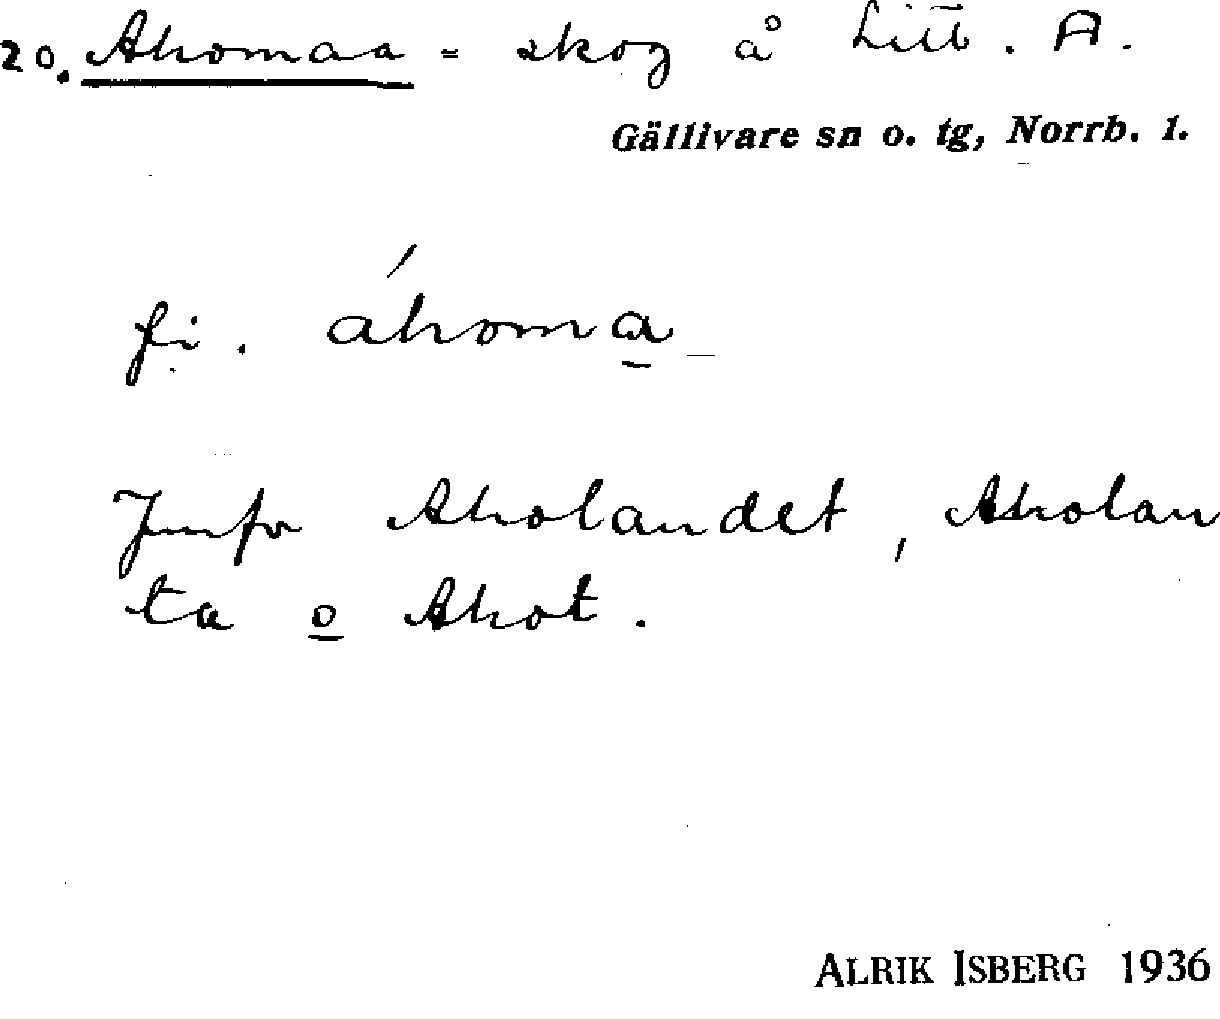 20. Ahomaa = skog å Litt. A.
Gällivare sn o. tg, Norrb. l.
fi. áhoma̲
Jmfr Aholandet, Aholan
ta o̲ Ahot.
ALRIK ISBERG 1936